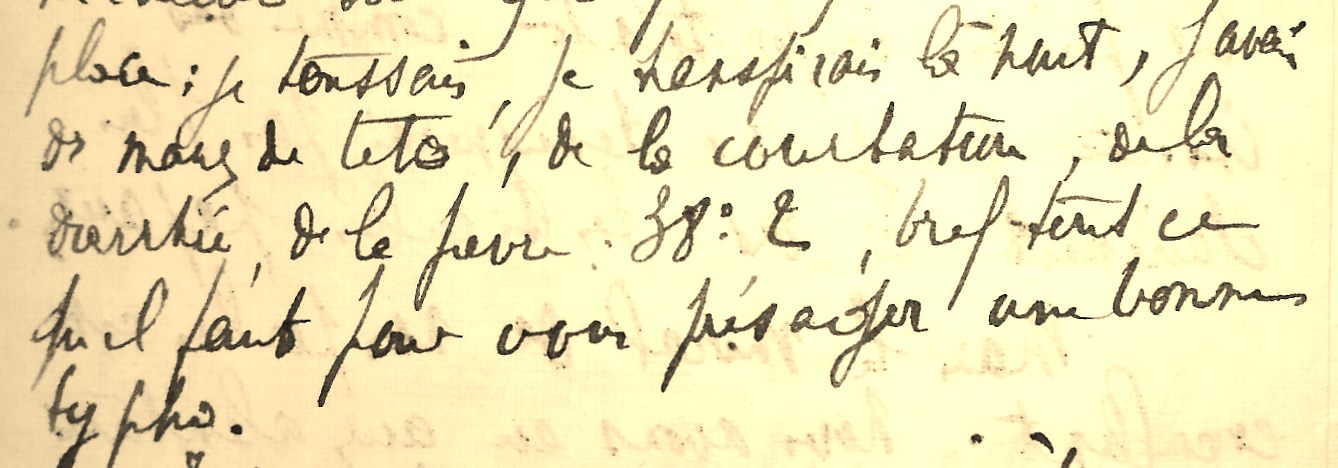 place ; je toussais, je transpirais la nuit, j'avais
des maux de tete, de la courbature, de la
diarrhée, de la fievre 38° 2, bref tout ce
qu'il faut pour vous présager une bonne
typho.